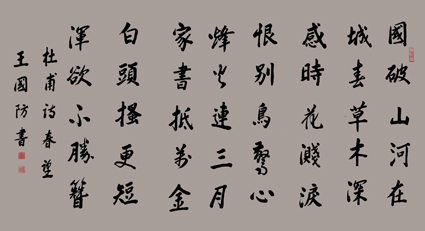 國破山河在
城春草木深
感時花濺淚
恨别鳥驚心
烽火連三月
家書抵萬金
白頭搔更短
渾欲不勝簪
杜甫詩春望
王國防書